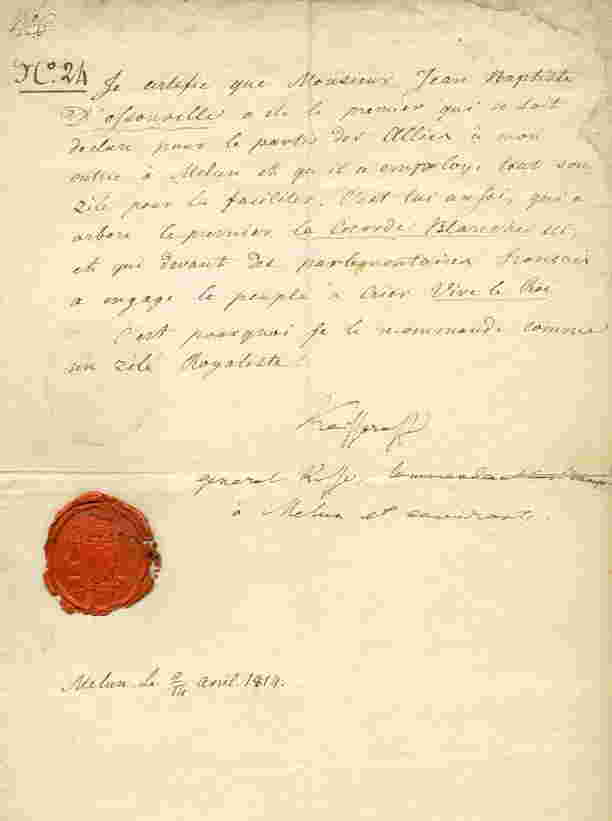 N.º 24 Je certifie que Monsieur Jean Baptiste
D'ossonville a été le premier qui se soit
declaré pour le partie des Alliés à mon
entré à Melun et qu'il a employé tout son
zêle pour la faciliter. C'est lui aussi, qui a
arboré le premier la Cocarde Blanche ici,
et qui devant des parlementaires francais
a engagé le peuple à crier Vive le Roi
C'est pourquoi je le recommande comme
un zélé Royaliste.
général Russe
à Melun et environs.
Melun le 2/14 avril 1814.